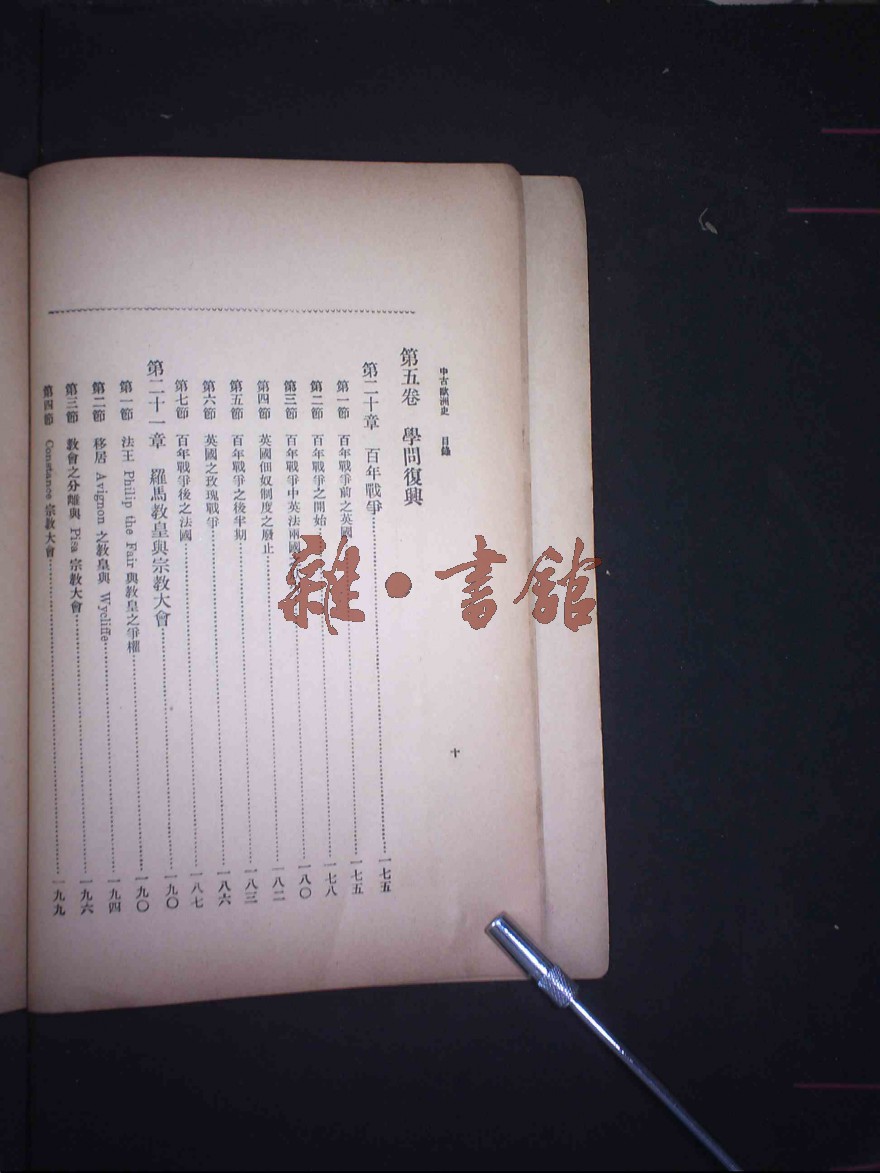 中古歐洲史 目錄
十
第五卷 學問復興
第二十章 百年戰爭……一七五
第一節 百年戰爭前之英國……一七五
第二節 百年戰爭之開始……一七八
第三節 百年戰爭中英法兩國……一八〇
第四節 英國佃奴制度之廢止……一八二
第五節 百年戰爭之後半期……一八三
第六節 英國之玫瑰戰爭……一八六
第七節 百年戰爭後之法國……一八七
第二十一章 羅馬教皇與宗教大會……一九〇
第一節 法王 Philip the Fair 與教皇之爭權……一九〇
第二節 移居 Avignon 之教皇與 Wycliffe……一九四
第三節 教會之分離與 Pisa 宗教大會……一九六
第四節 Constance 宗教大會……一九九
雜·書館